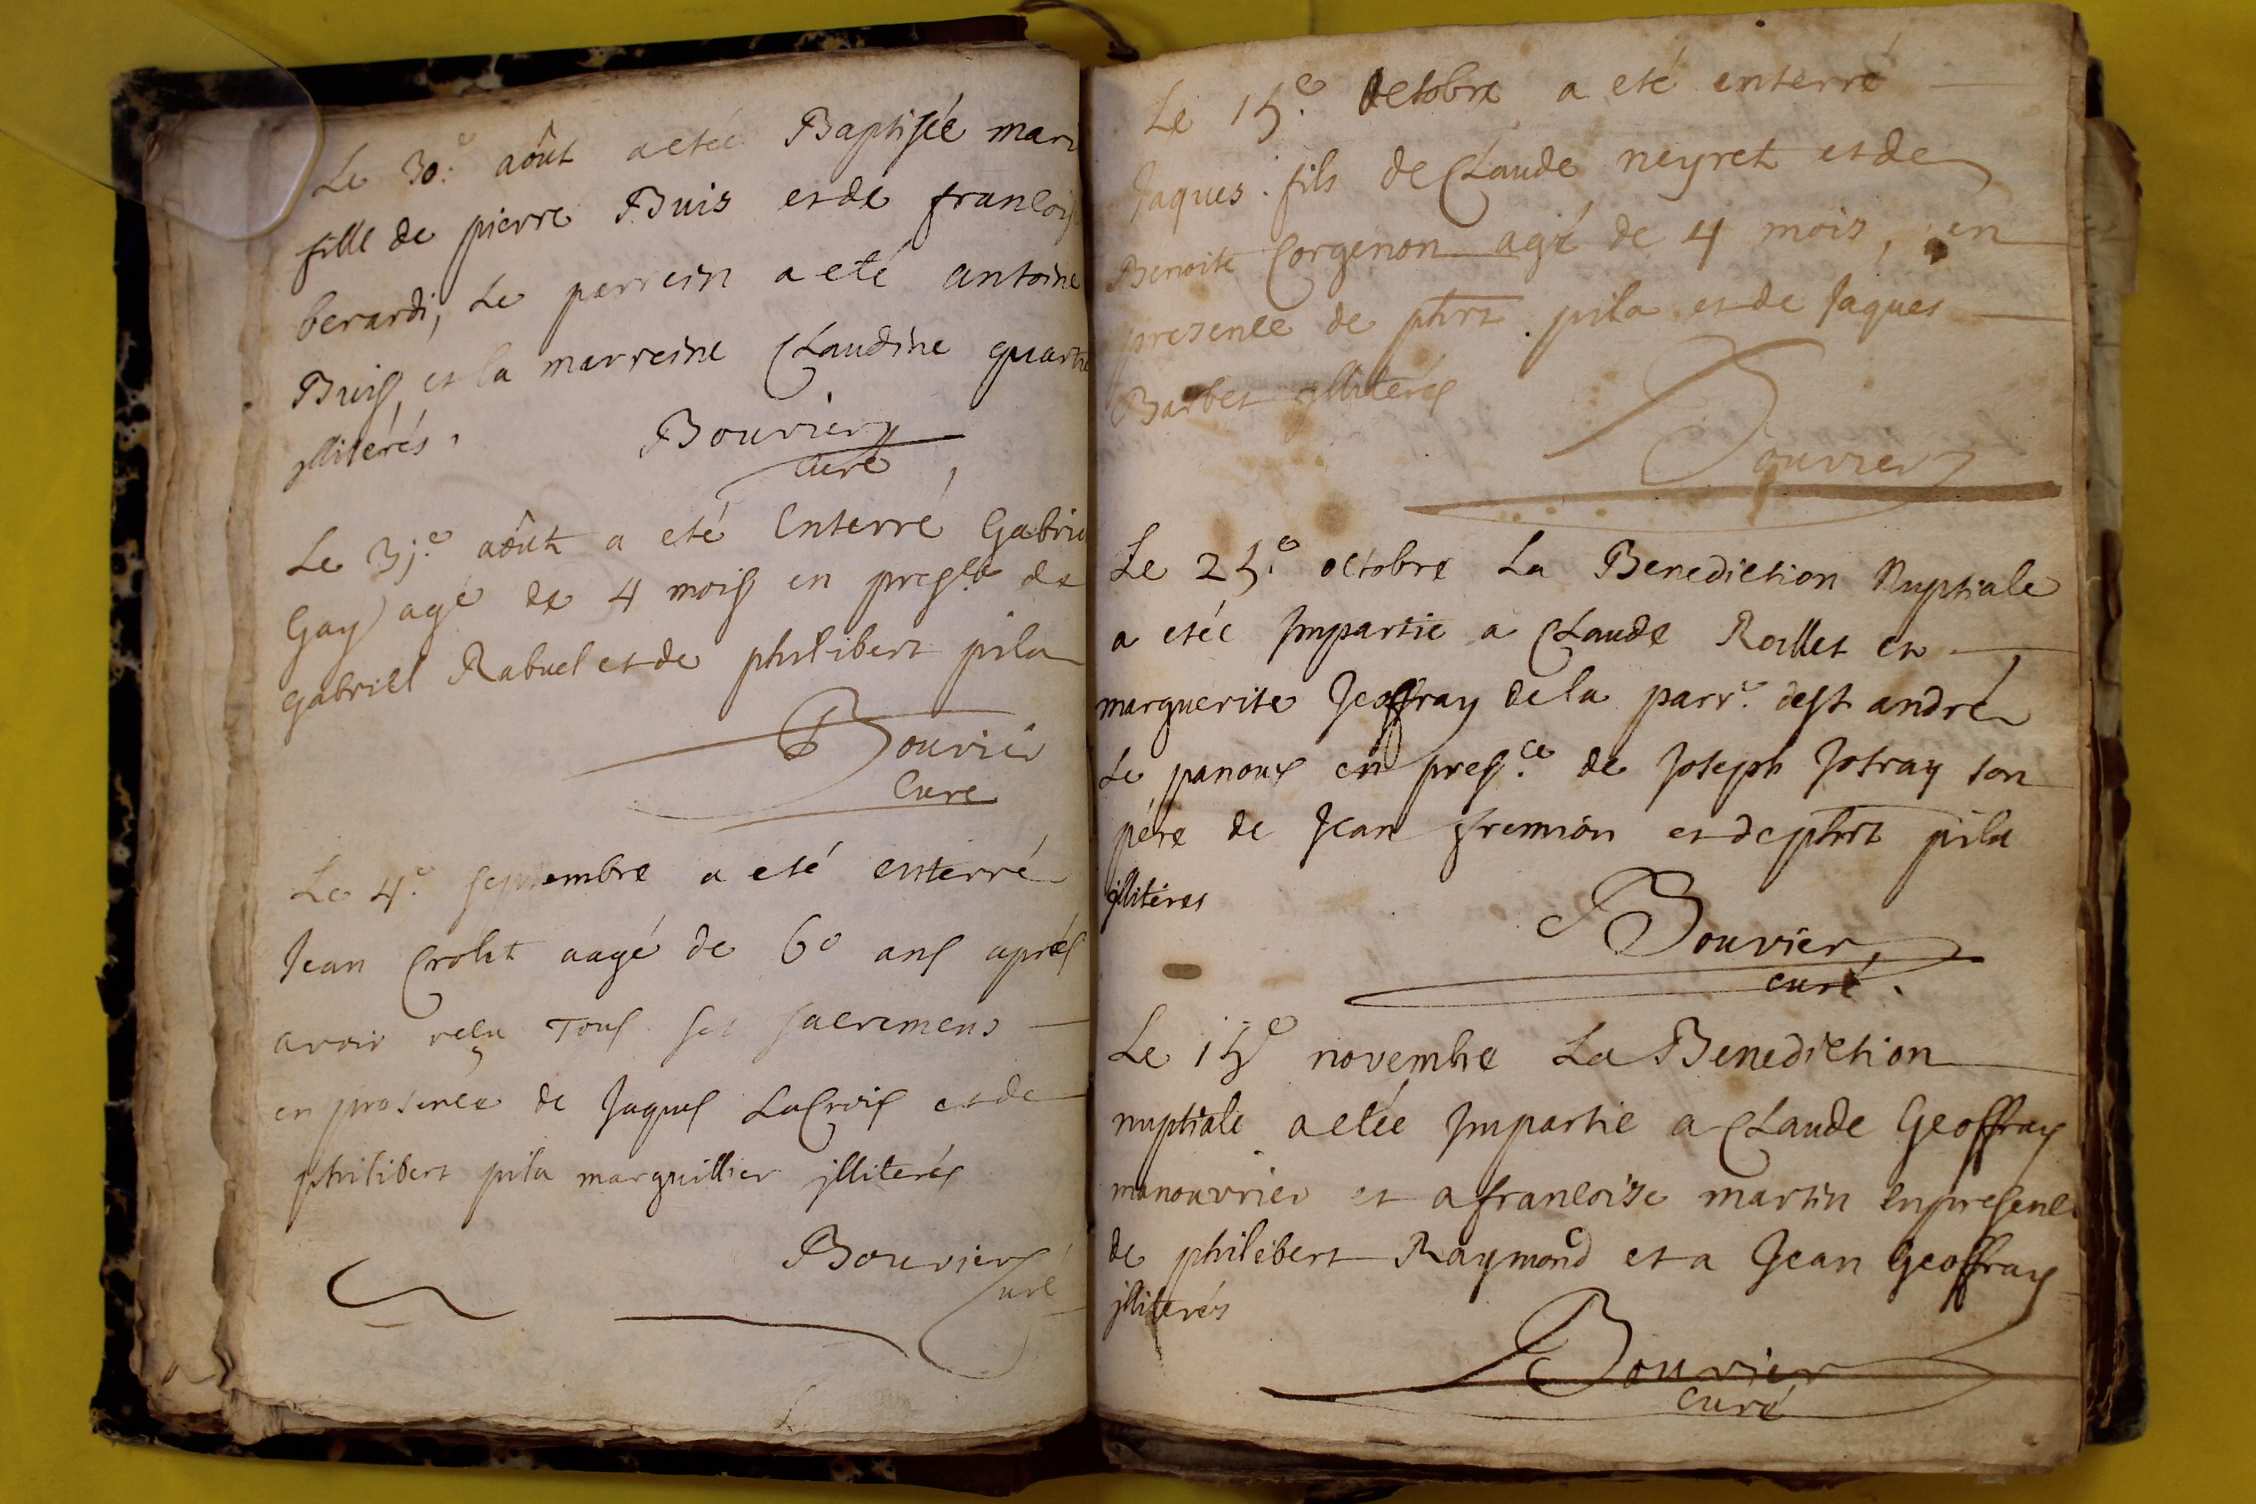 Le 30.e aôut a etée Baptisée mari
fille de pierre Buis et de francois
berardi, Le parrein a eté antoine
Buis et la marreine Claudine quart
jllitérés. Bouvier
curé
Le 3j.e aôut a eté Enterré Gabrie
Gay agé de 4 mois en pres.ce de
gabriel Rabuel et de philibert pila
Bouvier
Curé
Le 4.e septembre a eté enterré
Jean Crolet aagé de 60 ans aprés
avoir reçu Tous ses sacremens
en presence de Jaques LaCroix et de
philibert pila marguillier jlliterés
Bouvier
Curé
Le 15.e octobre a eté enterré
Jaques fils de Claude neyret et de
Benoite Corgenon agé de 4 mois, en
presence de phrt pila et de Jaques
Barbet jlliterés
Bouvier
Le 25.e octobre La Benediction Nuptiale
a etée Jmpartie a Claude Rollet et
marguerite Jeoffray de la parr.e de st andré
Le panoux en pres.ce de Joseph Jofray son
pére de Jean fremion et de phrt pila
jlliterés
Bouvier
curé.
Le 15e novembre La Benediction
nuptiale a etée Jmpartie a Claude Geoffray
manouvrier et a francoise martin en presence
de philibert Raymond et a Jean Geoffray
jlliterés
Bouvier
curé